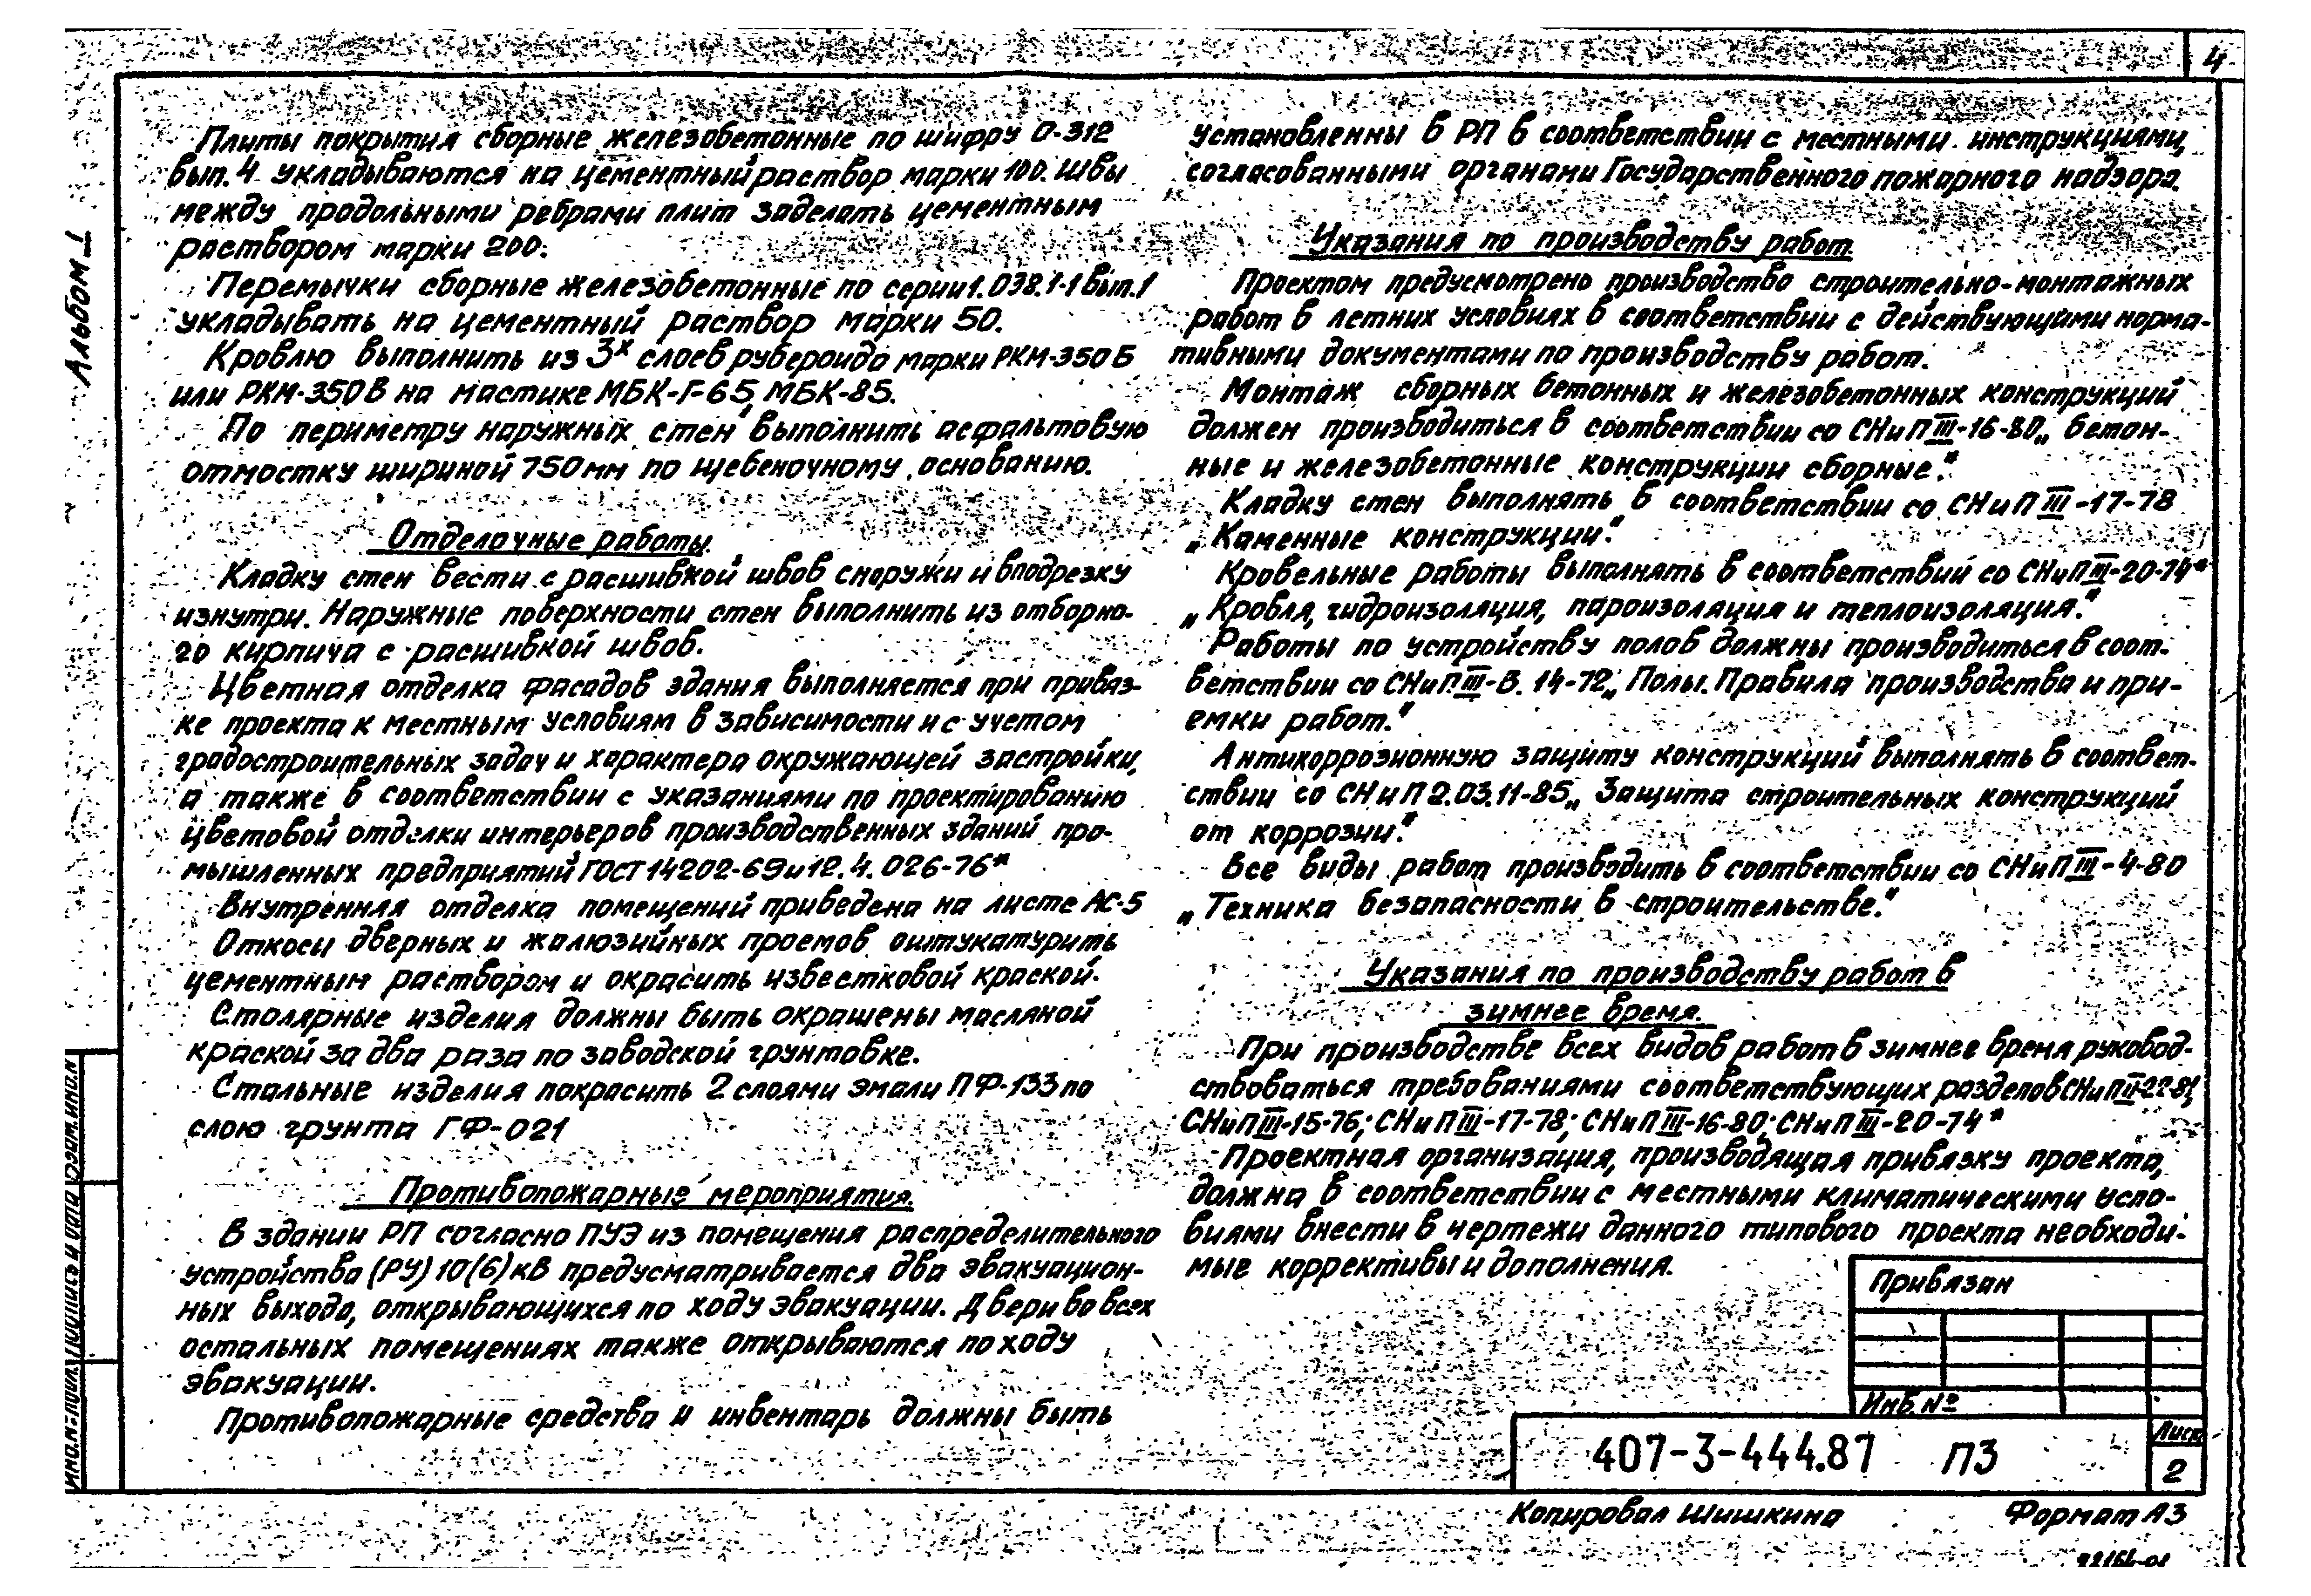 4
Альбом I
Плиты покрытия сборные железобетонные по шифру 0-312
вып. 4 укладываются на цементный раствор марки 100. Швы
между продольными ребрами плит заделать цементным
раствором марки 200.
Перемычки сборные железобетонные по серии 1.038.1-1 вып.1
укладывать на цементный раствор марки 50.
Кровлю выполнить из 3х слоев рубероида марки РКМ-350Б
или РКМ-350В на мастике МБК-Г-65, МБК-85.
По периметру наружных стен выполнить асфальтовую
отмостку шириной 750мм по щебеночному основанию.
Отделочные работы.
Кладку стен вести с расшивкой швов снаружи и вподрезку
изнутри. Наружные поверхности стен выполнить из отборно-
го кирпича с расшивкой швов.
Цветная отделка фасадов здания выполняется при привяз-
ке проекта к местным условиям в зависимости и с учетом
градостроительных задач и характера окружающей застройки,
а также в соответствии с указаниями по проектированию
цветовой отделки интерьеров производственных зданий про-
мышленных предприятий ГОСТ 14202-69 и 12.4.026-76*
Внутренняя отделка помещений приведена на листе АС-5
Откосы дверных и жалюзийных проемов оштукатурить
цементным раствором и окрасить известковой краской.
Столярные изделия должны быть окрашены масляной
краской за два раза по заводской грунтовке.
Стальные изделия покрасить 2 слоями эмали ПФ-133 по
слою грунта ГФ-021
Противопожарные мероприятия.
В здании РП согласно ПУЭ из помещения распределительного
устройства (РУ) 10(6) кВ предусматривается два эвакуацион-
ных выхода, открывающихся по ходу эвакуации. Двери во всех
остальных помещениях также открываются по ходу
эвакуации.
Противопожарные средства и инвентарь должны быть
установленны в РП в соответствии с местными инструкциями,
согласованными органами Государственного пожарного надзора.
Указания по производству работ.
Проектом предусмотрено производство строительно-монтажных
работ в летних условиях в соответствии с действующими норма-
тивными документами по производству работ.
Монтаж сборных бетонных и железобетонных конструкций
должен производиться в соответствии со СНиП III-16-80 „Бетон-
ные и железобетонные конструкции сборные."
Кладку стен выполнять в соответствии со СНиП III-17-78
„Каменные конструкции."
Кровельные работы выполнять в соответствий со СНиП III-20-74*
„Кровля, гидроизоляция, пароизоляция и теплоизоляция."
Работы по устройству полов должны производиться в соот-
ветствии со СНиП.III-В.14-72 „Полы. Правила производства и при-
емки работ."
Антикоррозионную защиту конструкций выполнять в соответ-
ствии со СНиП 2.03.11-85 „Защита строительных конструкций
от коррозии."
Все виды работ производить в соответствии со СНиП III-4-80
„Техника безопасности в строительстве."
Указания по производству работ в
зимнее время.
При производстве всех видов работ в зимнее время руковод-
ствоваться требованиями соответствующих разделов СНиП II-22-81,
СНиП III-15-76; СНиП III-17-78; СНиП III-16-80; СНиП III-20-74*
Проектная организация, производящая привязку проекта,
должна в соответствии с местными климатическими усло-
виями внести в чертежи данного типового проекта необходи-
мые коррективы и дополнения.
Привязан
Инв. №
407-3-444.87 ПЗ
Лист
2
Инв.№ подл. Подпись и дата Взам.инв.№
Копировал Шишкина Формат А3
22164-01